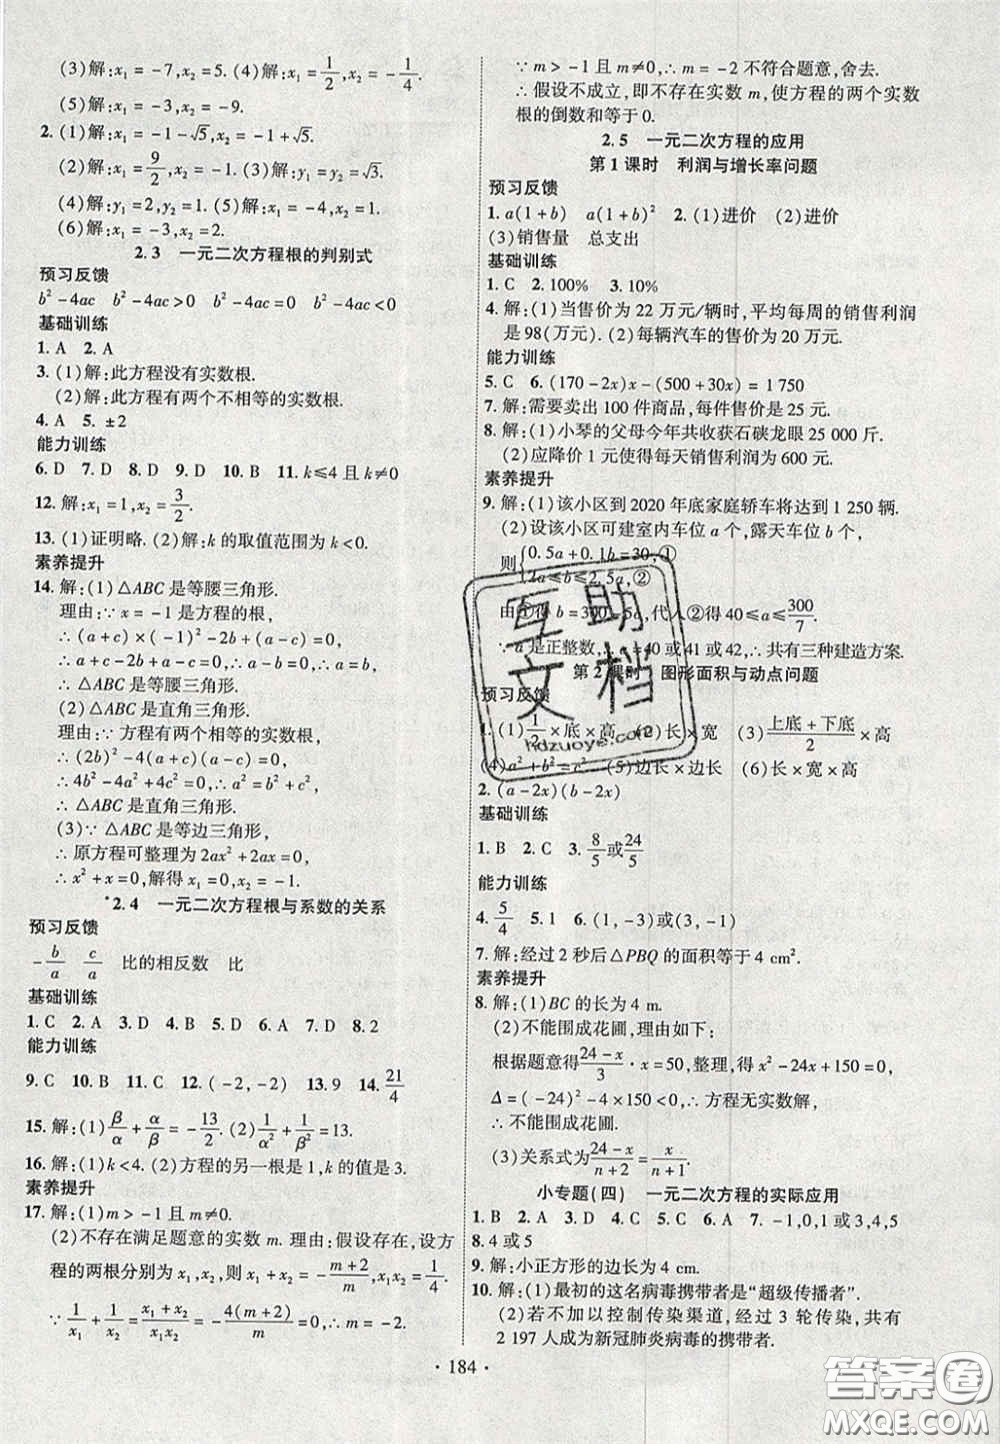 (3)解:x₁=-7,x₂=5. (4)解:x₁=1/2,x₂=-1/4.
(5)解:x₁=-3,x₂=-9.
2. (1)解:x₁=-1-√5,x₂=-1+√5.
(2)解:x₁=9/2,x₂=-1. (3)解:y₁=y₂=√3.
(4)解:y₁=2,y₂=1. (5)解:x₁=-4,x₂=1.
(6)解:x₁=-3,x₂=2.
2.3 一元二次方程根的判别式
预习反馈
b²-4ac b²-4ac>0 b²-4ac=0 b²-4ac<0
基础训练
1. A 2. A
3. (1)解:此方程没有实数根.
(2)解:此方程有两个不相等的实数根.
4. A 5. ±2
能力训练
6. D 7. D 8. D 9. D 10. B 11. k≤4 且 k≠0
12. 解:x₁=1,x₂=3/2.
13. (1)证明略. (2)解:k 的取值范围为 k<0.
素养提升
14. 解:(1)△ABC 是等腰三角形.
理由:∵x=-1 是方程的根,
∴(a+c)×(-1)²-2b+(a-c)=0,
∴a+c-2b+a-c=0,∴a-b=0,∴a=b,
∴△ABC 是等腰三角形.
(2)△ABC 是直角三角形.
理由:∵方程有两个相等的实数根,
∴(2b)²-4(a+c)(a-c)=0,
∴4b²-4a²+4c²=0,∴a²=b²+c²,
∴△ABC 是直角三角形.
(3)∵△ABC 是等边三角形,
∴原方程可整理为 2ax²+2ax=0,
∴x²+x=0,解得 x₁=0,x₂=-1.
*2.4 一元二次方程根与系数的关系
预习反馈
-b/a c/a 比的相反数 比
基础训练
1. C 2. A 3. D 4. B 5. D 6. A 7. D 8. 2
能力训练
9. C 10. B 11. C 12. (-2,-2) 13. 9 14. 21/4
15. 解:(1)β/α+α/β=-13/2. (2)1/α²+1/β²=13.
16. 解:(1)k<4. (2)方程的另一根是 1,k 的值是 3.
素养提升
17. 解:(1)m>-1 且 m≠0.
(2)不存在满足题意的实数 m. 理由:假设存在,设方
程的两根分别为 x₁,x₂,则 x₁+x₂=-(m+2)/m,x₁x₂=1/4
∵1/x₁+1/x₂=(x₁+x₂)/(x₁x₂)=-4(m+2)/m=0,∴m=-2.
∵m>-1 且 m≠0,∴m=-2 不符合题意,舍去.
∴假设不成立,即不存在实数 m,使方程的两个实数
根的倒数和等于 0.
2.5 一元二次方程的应用
第 1 课时 利润与增长率问题
预习反馈
1. a(1+b) a(1+b)² 2. (1)进价 (2)进价
(3)销售量 总支出
基础训练
1. C 2. 100% 3. 10%
4. 解:(1)当售价为 22 万元/辆时,平均每周的销售利润
是 98(万元). (2)每辆汽车的售价为 20 万元.
能力训练
5. C 6. (170-2x)x-(500+30x)=1 750
7. 解:需要卖出 100 件商品,每件售价是 25 元.
8. 解:(1)小琴的父母今年共收获石硖龙眼 25 000 斤.
(2)应降价 1 元使得每天销售利润为 600 元.
素养提升
9. 解:(1)该小区到 2020 年底家庭轿车将达到 1 250 辆.
(2)设该小区可建室内车位 a 个,露天车位 b 个,
则{0.5a+0.1b=30,①
2a≤b≤2.5a,②
由①得 b=300-5a,代入②得 40≤a≤300/7.
∵a 是正整数,∴a=40 或 41 或 42,∴共有三种建造方案.
第 2 课时 图形面积与动点问题
预习反馈
1. (1)1/2×底×高 (2)长×宽 (3)(上底+下底)/2×高
(4)a²+b²=c² (5)边长×边长 (6)长×宽×高
2. (a-2x)(b-2x)
基础训练
1. B 2. C 3. 8/5或24/5
能力训练
4. 5/4 5. 1 6. (1,-3)或(3,-1)
7. 解:经过 2 秒后△PBQ 的面积等于 4 cm².
素养提升
8. 解:(1)BC 的长为 4 m.
(2)不能围成花圃,理由如下:
根据题意得(24-x)/3·x=50,整理,得 x²-24x+150=0,
Δ=(-24)²-4×150<0,∴方程无实数解,
∴不能围成花圃.
(3)关系式为(24-x)/(n+2)=x/(n+1).
小专题(四) 一元二次方程的实际应用
1. B 2. A 3. C 4. C 5. B 6. A 7. -1,0,1 或 3,4,5
8. 4 或 5
9. 解:小正方形的边长为 4 cm.
10. 解:(1)最初的这名病毒携带者是“超级传播者”.
(2)若不加以控制传染渠道,经过 3 轮传染,共有
2 197 人成为新冠肺炎病毒的携带者.
·184·
互助
文档
hdzuoye.com
答案圈
MXQE.COM